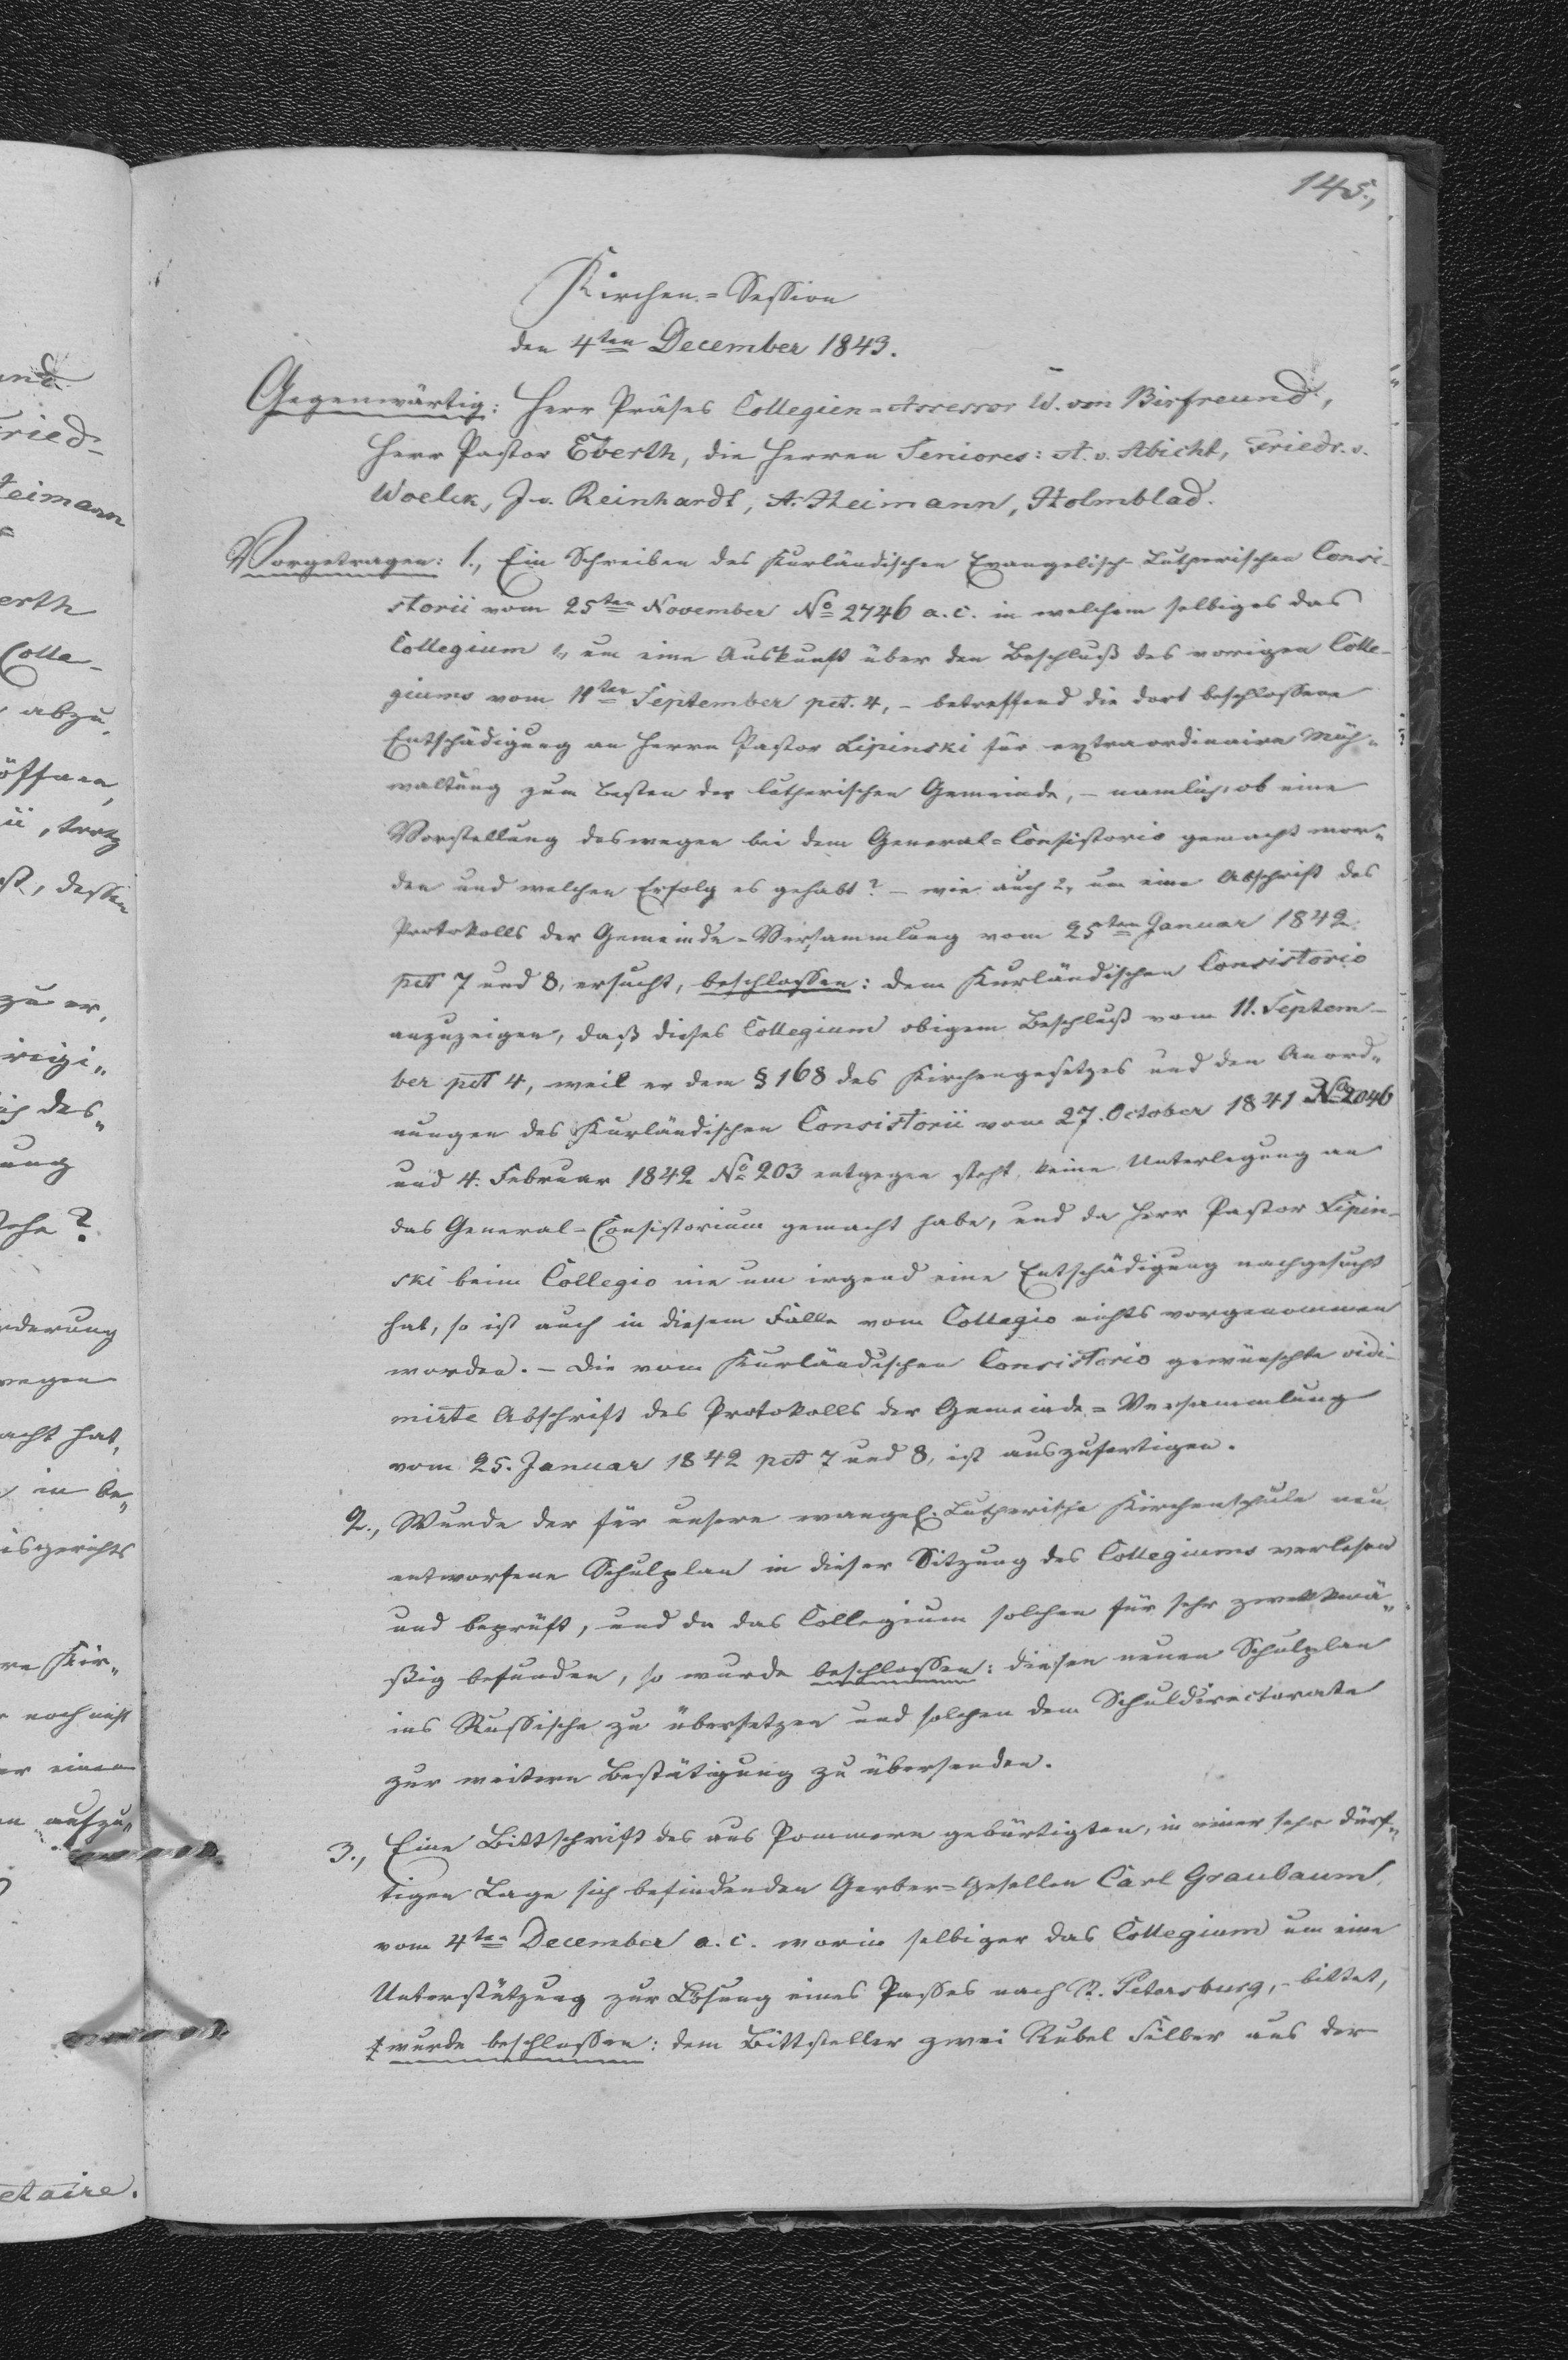 145.,
Kirchen-Session
den 4ten December 1843.
Gegenwärtig: Herr Präses Collegien-Assessor W. von Birfreund,
Herr Pastor Eberth, die Herren Seniores: A. v. Abicht, Friedr. v.
Woelck, J. v. Reinhardt, A. Heimann, Holmblad.
Vorgetragen: 1., Ein Schreiben des Kurländischen Evangelisch-Lutherischen Consi-
storii vom 25ten November No 2746 a. c. in welchem selbiges das
Collegium 1, um eine Auskunft über den Beschluß des vorigen Colle-
giums vom 11ten September pct. 4, - betreffend die dort beschlossene
Entschädigung an Herrn Pastor Lipinski für extraordinaire Müh-
waltung zum Besten der lutherischen Gemeinde, - namlich, ob eine
Vorstellung deswegen bei dem General-Consistorio gemacht wor-
den und welchen Erfolg es gehabt? - wie auch 2, um eine Abschrift des
Protokolls der Gemeinde-Versammlung vom 25ten Januar 1842
pct 7 und 8, ersucht, beschlossen: dem Kurländischen Consistorio
anzuzeigen, daß dieses Collegium obigem Beschluß vom 11. Septem-
ber pct 4, weil er dem § 168 des Kirchengesetzes und den Anord-
nungen des Kurländischen Consistorii vom 27. October 1841 No 2046
und 4. Februar 1842 No 203 entgegen steht, keine Unterlegung an
das General-Consistorium gemacht habe, und da Herr Pastor Lipin-
ski beim Collegio nie um irgend eine Entschädigung nachgesucht
hat, so ist auch in diesem Falle vom Collegio nichts vorgenommen
worden. - Die vom Kurländischen Consistorio gewünschte vidi-
mirte Abschrift des Protokolls der Gemeinde-Versammlung
vom 25. Januar 1842 pct 7 und 8, ist auszufertigen.
2., Wurde der für unsere evangel. Lutherische Kirchenschule neu
entworfene Schulplan in dieser Sitzung des Collegiums verlesen
und beprüft, und da das Collegium solchen für sehr zweckmä-
ßig befunden, so wurde beschlossen: diesen neuen Schulplan
ins Russische zu übersetzen und solchen dem Schuldirectorate
zur weitern Bestätigung zu übersenden.
3., Eine Bittschrift des aus Pommern gebürtigten, in einer sehr dürf-
tigen Lage sich befindenden Gerber-Gesellen Carl Graubaum,
vom 4ten December a. c. worin selbiger das Collegium um eine
Unterstützung zur Lösung eines Passes nach St. Petersburg, - bittet,
wurde beschlossen: dem Bittsteller zwei Rubel Silber aus der